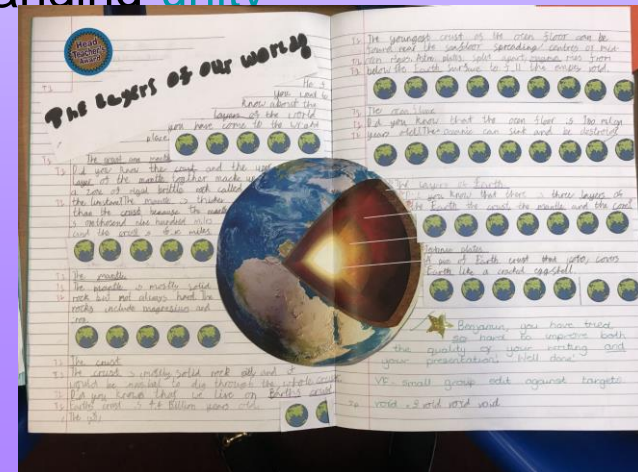 anding unity
Head Teacher's Award
The layers of our world
Hi If
you want to
know about the
layers of the world
you have come to the
place
The crust and mantle
Did you know the crust and the upper
layer of the mantle together make up
a zone of rigid brittle rock called
the The mantle is thicker
than the crust because the mantle
is nine hundred miles
and the crust is six miles
The mantle
The mantle is mostly solid
rock but not always hard The
rocks include magnesium and
The crust
The crust is mostly solid rock and it
would be to dig through the whole crust
Did you know that we live on Earth's crust
Earth's crust is 4.4 Billion years old
The youngest crust of the ocean floor can be
found near the seafloor spreading centres or mid
plates split apart, magma rises from
below the Earth surface to fill the empty void
The
Did you know that the ocean floor is
years The can sink and be destroyed
layers of Earth
you know that there three layers of
the Earth the crust the mantle and the core
plates
A of Earth crust that covers
Earth like a cracked eggshell
Benjamin, you have tried
so hard to improve both
the quality of your writing and
your presentation! Well done!
VF - small group edit against targets
void void void void